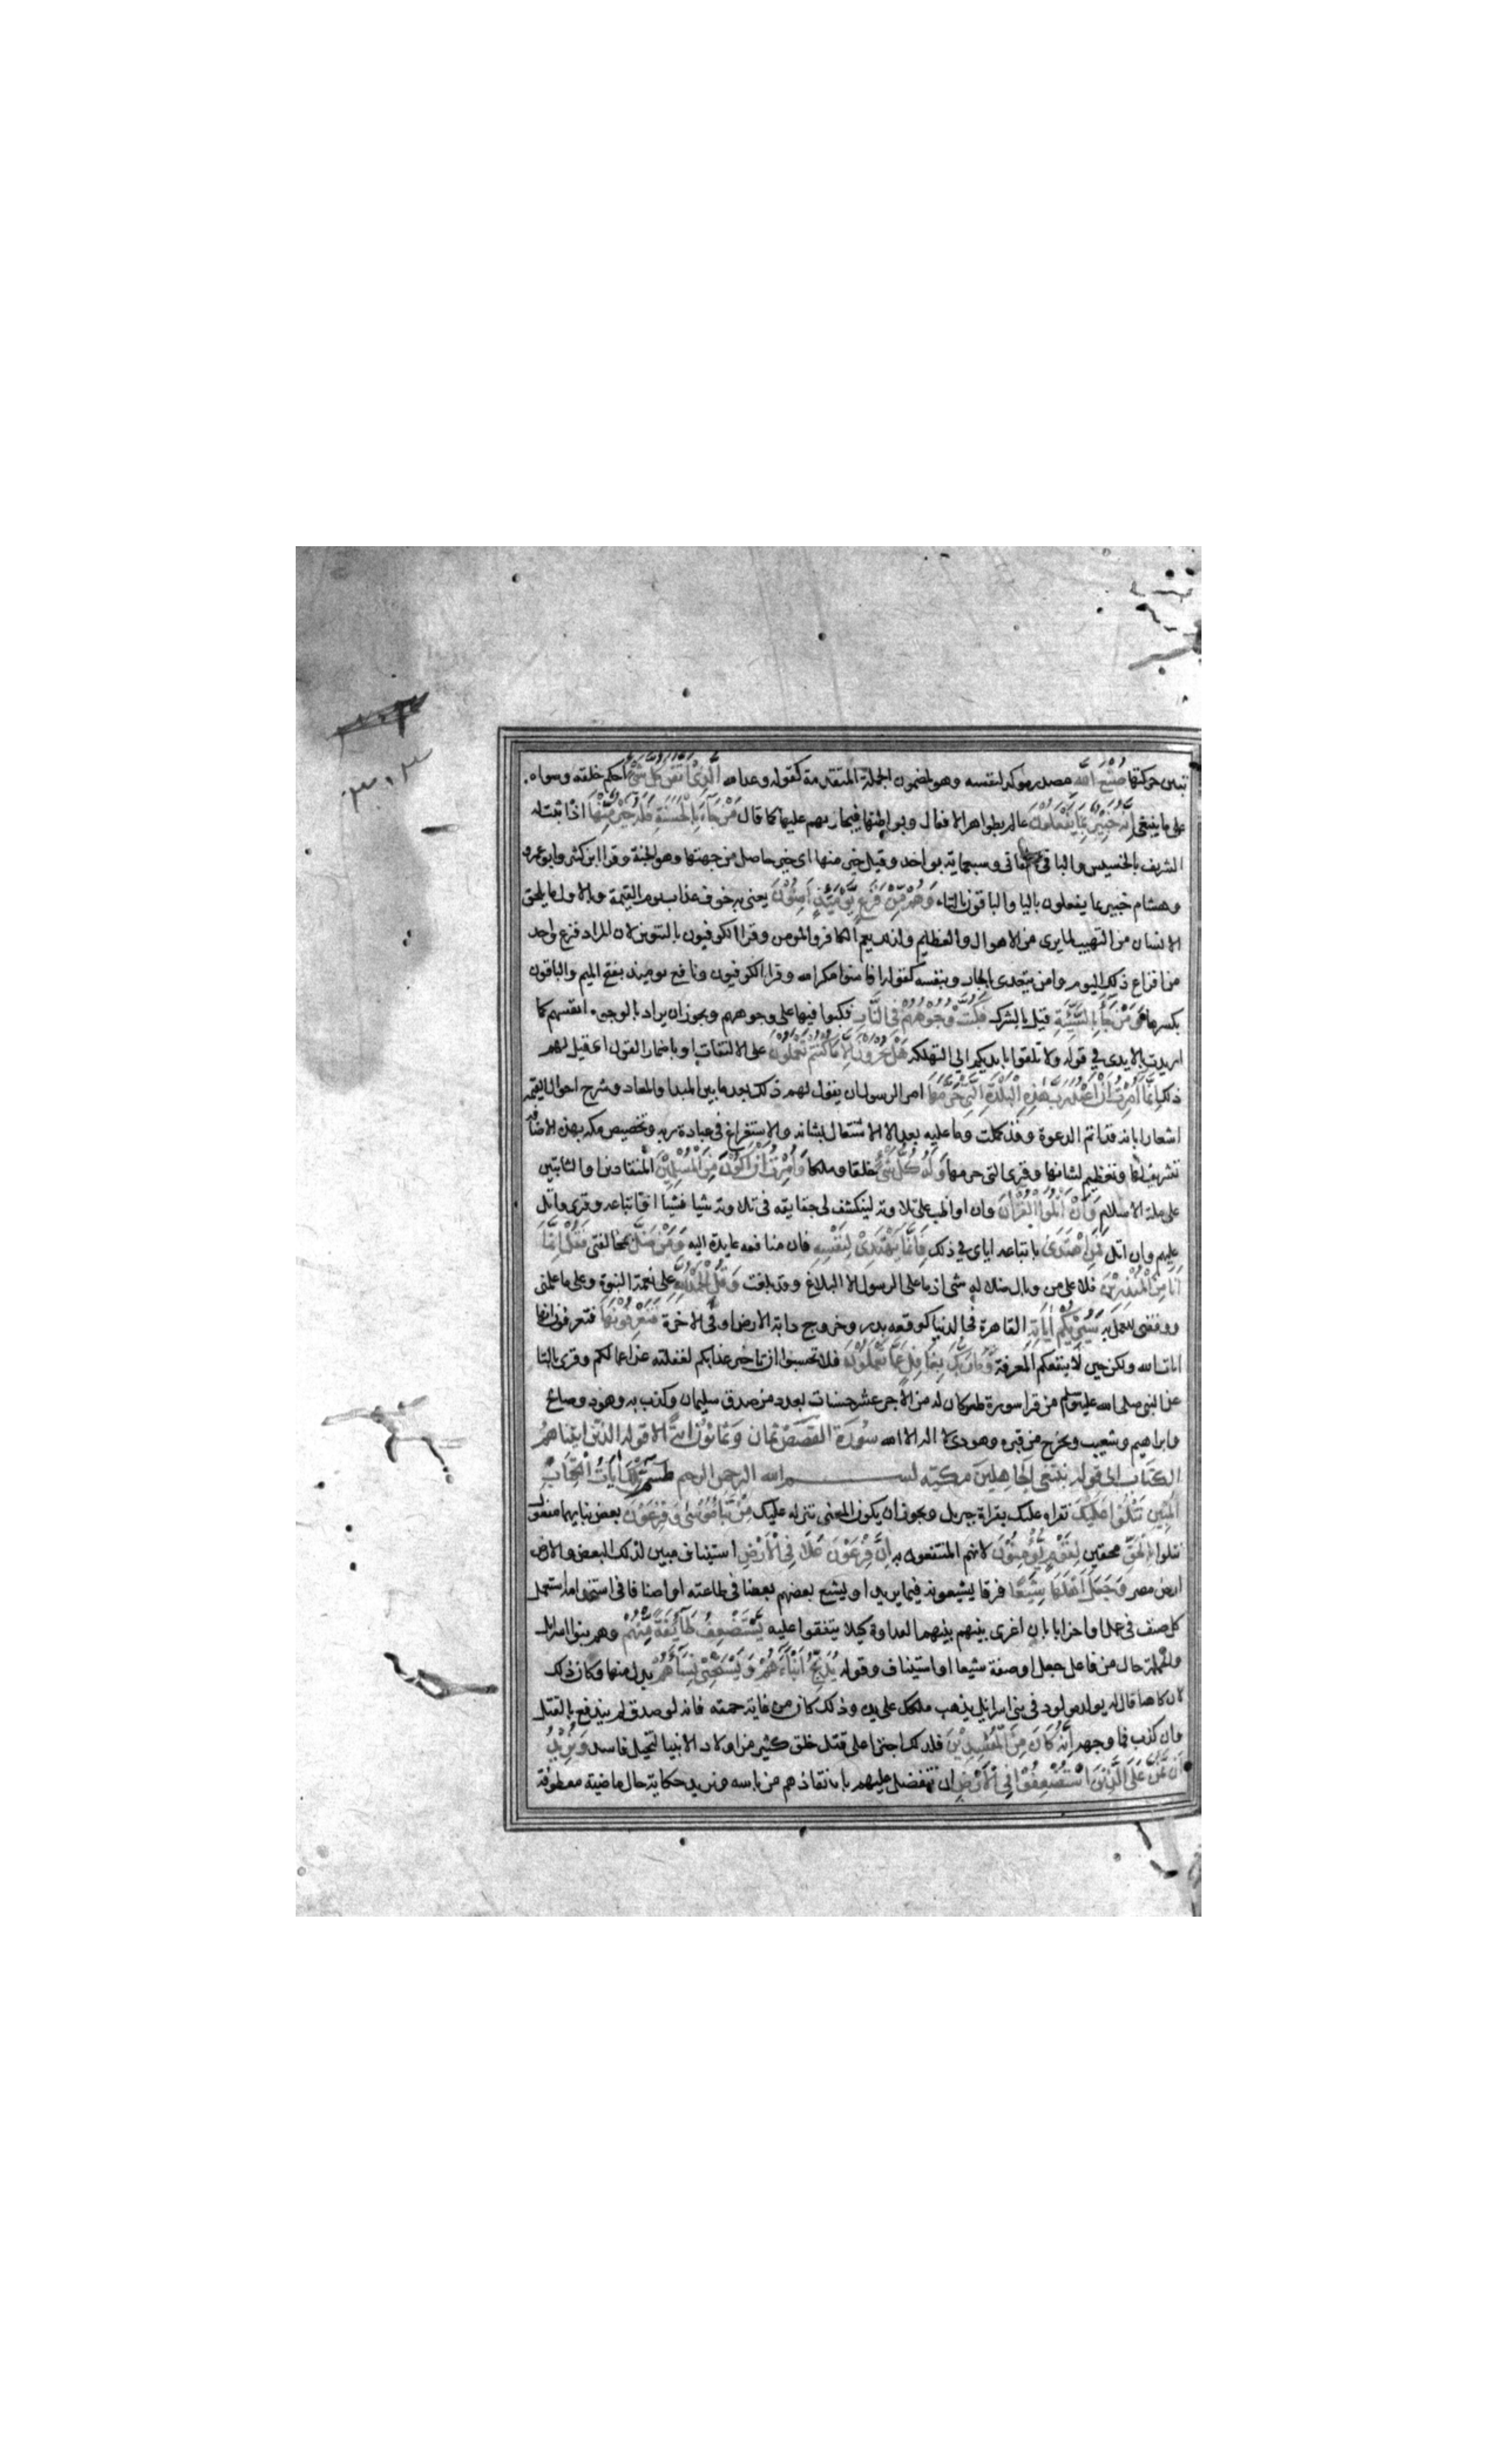 تتبين حركتها صُنْعَ اللهِ مصدر موكد لنفسه وهو لمضمون الجملة المتقدمة كقوله وعد الله الَّذِي أَتْقَنَ كُلَّ شَيْءٍ احكم خلقه وسواه
على ما ينبغى إِنَّهُ خَبِيرٌ بِمَا يَفْعَلُونَ عالم بظواهر الافعال وبواطنها فيجازيهم عليها كما قال مَنْ جَاءَ بِالْحَسَنَةِ فَلَهُ خَيْرٌ مِّنْهَا اذا ثبت له
الشريف بالخسيس والباقى بالفانى وسبعماية بواحد وقيل خير منها اى خير حاصل من جهتها وهو الجنة وقرا ابن كثير وابو عمرو
وهشام خبير بما يفعلون باليا والباقون بالتاء وَهُمْ مِّنْ فَزَعٍ يَّوْمَئِذٍ آمِنُونَ يعنى به خوف عذاب يوم القيمة وبالاول ما يلحق
الانسان من التهيب لما يرى من الاهوال والعظايم ولذلك يعم الكافر والمومن وقرا الكوفيون بالتنوين لان المراد فزع واحد
من افزاع ذلك اليوم وامن يتعدى بالجار وبنفسه كقوله افامنوا مكر الله وقرا الكوفيون ونافع يوميذ بفتح الميم والباقون
بكسرها وَمَنْ جَاءَ بِالسَّيِّئَةِ قيل بالشرك فَكُبَّتْ وُجُوهُهُمْ فِي النَّارِ فكبوا فيها على وجوههم ويجوز ان يراد بالوجوه انفسهم كما
اريدت بالايدى في قوله ولا تلقوا بايديكم الى التهلكه هَلْ تُجْزَوْنَ إِلَّا مَا كُنْتُمْ تَعْمَلُونَ على الالتفات او باضمار القول اى قيل لهم
ذلك إِنَّمَا أُمِرْتُ أَنْ أَعْبُدَ رَبَّ هَذِهِ الْبَلْدَةِ الَّذِي حَرَّمَهَا امر الرسول ان يقول لهم ذلك بعد ما بين المبدا والمعاد وشرح احوال القيمه
اشعارا بانه قد اتم الدعوة وقد كملت وما عليه بعد الا الاشتغال بشانه والاستغراغ فى عبادة ربه وتخصيص مكه بهذه الاضافه
تشريف لها وتعظيم لشانها وقرى التى حرمها وَلَهُ كُلُّ شَيْءٍ خلقا وملكا وَأُمِرْتُ أَنْ أَكُونَ مِنَ الْمُسْلِمِينَ المنقادين او الثابتين
على ملة الاسلام وَأَنْ أَتْلُوَا الْقُرْآنَ وان اواظب على تلاوته لينكشف لى حقايقه فى تلاوته شيا فشيا او اتباعه وقرى واتل
عليهم وان اتل فَمَنِ اهْتَدَى باتباعه اياى في ذلك فَإِنَّمَا يَهْتَدِي لِنَفْسِهِ فان منافعه عايدة اليه وَمَنْ ضَلَّ بمخالفتى فَقُلْ إِنَّمَا
أَنَا مِنَ الْمُنْذِرِينَ فلا على من وبال ضلاله شى اذ ما على الرسول الا البلاغ وقد بلغت وَقُلِ الْحَمْدُ لِلَّهِ على نعمة النبوة وعلى ما علمنى
ووفقنى للعمل به سَيُرِيكُمْ آيَاتِهِ القاهرة فى الدنيا كوقعة بدر وخروج دابة الارض او فى الاخرة فَتَعْرِفُونَهَا فتعرفون انها
ايات الله ولكن حين لا ينفعكم المعرفة وَمَا رَبُّكَ بِغَافِلٍ عَمَّا تَعْمَلُونَ فلا تحسبوا ان تاخير عذابكم لغفلته عن اعمالكم وقرى بالتا
عن النبى صلى الله عليه وسلم من قرا سورة طس كان له من الاجر عشر حسنات بعدد من صدق سليمان وكذب به وهود وصالح
وابراهيم وشعيب ويخرج من قبره وهو ينادى لا اله الا الله سُورَةُ القَصَصِ ثمان وَثَمَانُونَ آيةً الا قوله الذين اتيناهم
الكتاب الى قوله نبتغى الجاهلين مكية بسم الله الرحمن الرحيم طسم تِلْكَ آيَاتُ الْكِتَابِ
الْمُبِينِ نَتْلُوا عَلَيْكَ نقراه عليك بقراة جبريل ويجوز ان يكون المعنى ننزله عليك مِنْ نَّبَإِ مُوسَى وَفِرْعَوْنَ بعض نبايهما مفعول
نتلوا بِالْحَقِّ محقين لِقَوْمٍ يُّؤْمِنُونَ لانهم المنتفعون به إِنَّ فِرْعَوْنَ عَلَا فِي الْأَرْضِ استيناف مبين لذلك البعض والارض
ارض مصر وَجَعَلَ أَهْلَهَا شِيَعًا فرقا يشيعونه فيما يريد او يشيع بعضهم بعضا فى طاعته او اصنافا فى استخدامه استعمل
كل صنف فى عمل او احزابا بان اغرى بينهم بينهما لعداوة كيلا يتفقوا عليه يَسْتَضْعِفُ طَائِفَةً مِّنْهُمْ وهم بنوا اسرايل
والجملة حال من فاعل جعل او صفة شيعا او استيناف وقوله يُذَبِّحُ أَبْنَاءَهُمْ وَيَسْتَحْيِي نِسَاءَهُمْ بدل منها وكان ذلك
لان كاهنا قال له يولد مولود فى بنى اسرايل يذهب ملكك على يده وذلك كان من غاية حمقه فانه لو صدق لم يندفع بالقتل
وان كذب فما وجهه إِنَّهُ كَانَ مِنَ الْمُفْسِدِينَ فلذلك اجترا على قتل خلق كثير من اولاد الانبيا لتخيل فاسد وَنُرِيدُ
أَنْ نَّمُنَّ عَلَى الَّذِينَ اسْتُضْعِفُوا فِي الْأَرْضِ ان نتفضل عليهم بانقاذهم من باسه ونريد حكاية حال ماضية معطوفة